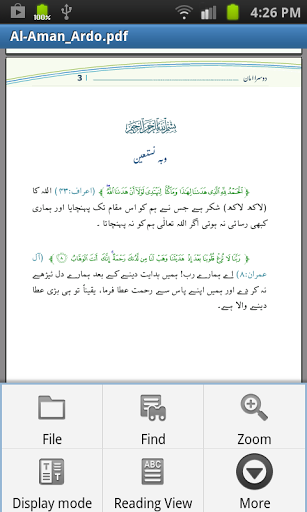 100%
4:26 PM
Al-Aman_Ardo.pdf
دوسرا امان
3
بِسْمِ اللهِ الرَّحْمٰنِ الرَّحِيْمِ
وبہ نستعین
﴿ اَلْحَمْدُ لِلّٰهِ الَّذِيْ هَدٰىنَا لِهٰذَا وَمَا كُنَّا لِنَهْتَدِيَ لَوْلَآ اَنْ هَدٰىنَا اللّٰهُ ﴾ (اعراف:۴۳) اللہ کا
(لاکھ لاکھ) شکر ہے جس نے ہم کو اس مقام تک پہنچایا اور ہماری
کبھی رسائی نہ ہوتی اگر اللہ تعالٰی ہم کو نہ پہنچاتا ۔
﴿ رَبَّنَا لَا تُزِغْ قُلُوْبَنَا بَعْدَ اِذْ هَدَيْتَنَا وَهَبْ لَنَا مِنْ لَّدُنْكَ رَحْمَةً اِنَّكَ اَنْتَ الْوَهَّابُ ﴾ (آل
عمران:۸) اے ہمارے رب! ہمیں ہدایت دینے کے بعد ہمارے دل ٹیڑھے
نہ کر دے اور ہمیں اپنے پاس سے رحمت عطا فرما، یقیناً تو ہی بڑی عطا
دینے والا ہے۔
File
Find
Zoom
Display mode
Reading View
More